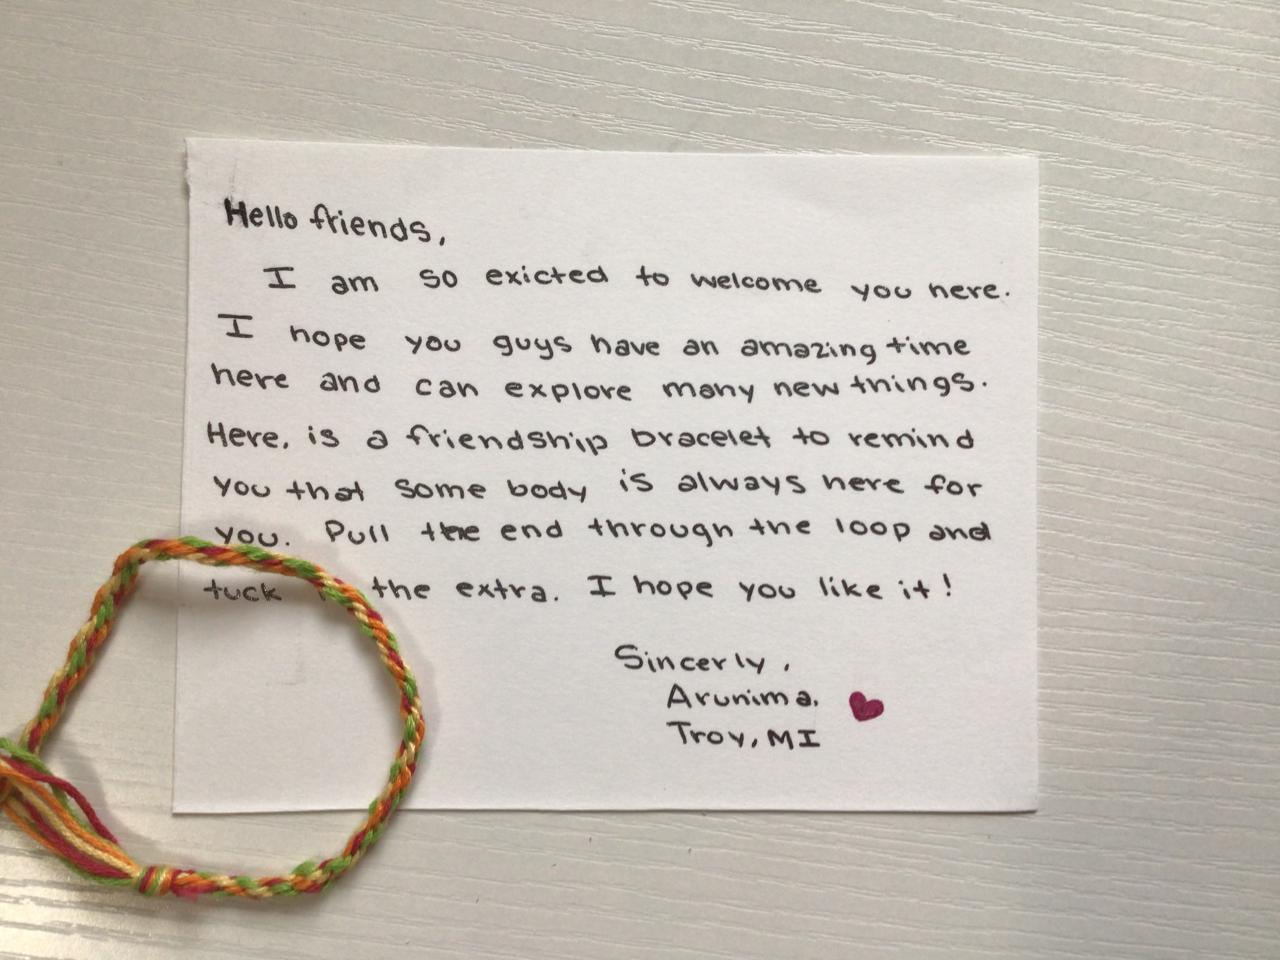 Hello friends,
I am so exicted to welcome you here.
I hope you guys have an amazing time
here and can explore many new things.
Here, is a friendship bracelet to remind
you that some body is always here for
you. Pull the end through the loop and
tuck the extra. I hope you like it!
Sincerly,
Arunima,
Troy, MI